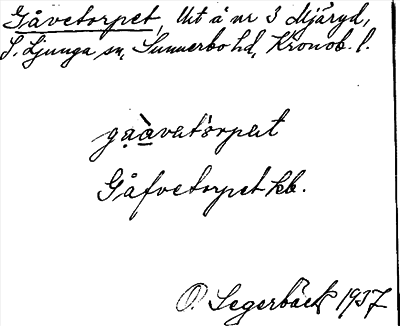 Gåvetorpet, Utt å nr 3 Mjäryd,
S. Ljunga sn, Sunnerbo hd, Kronob. l.
gạà̠̣vatȯrpet
Gåfvetorpet kb.
O. Segerbäck 1937